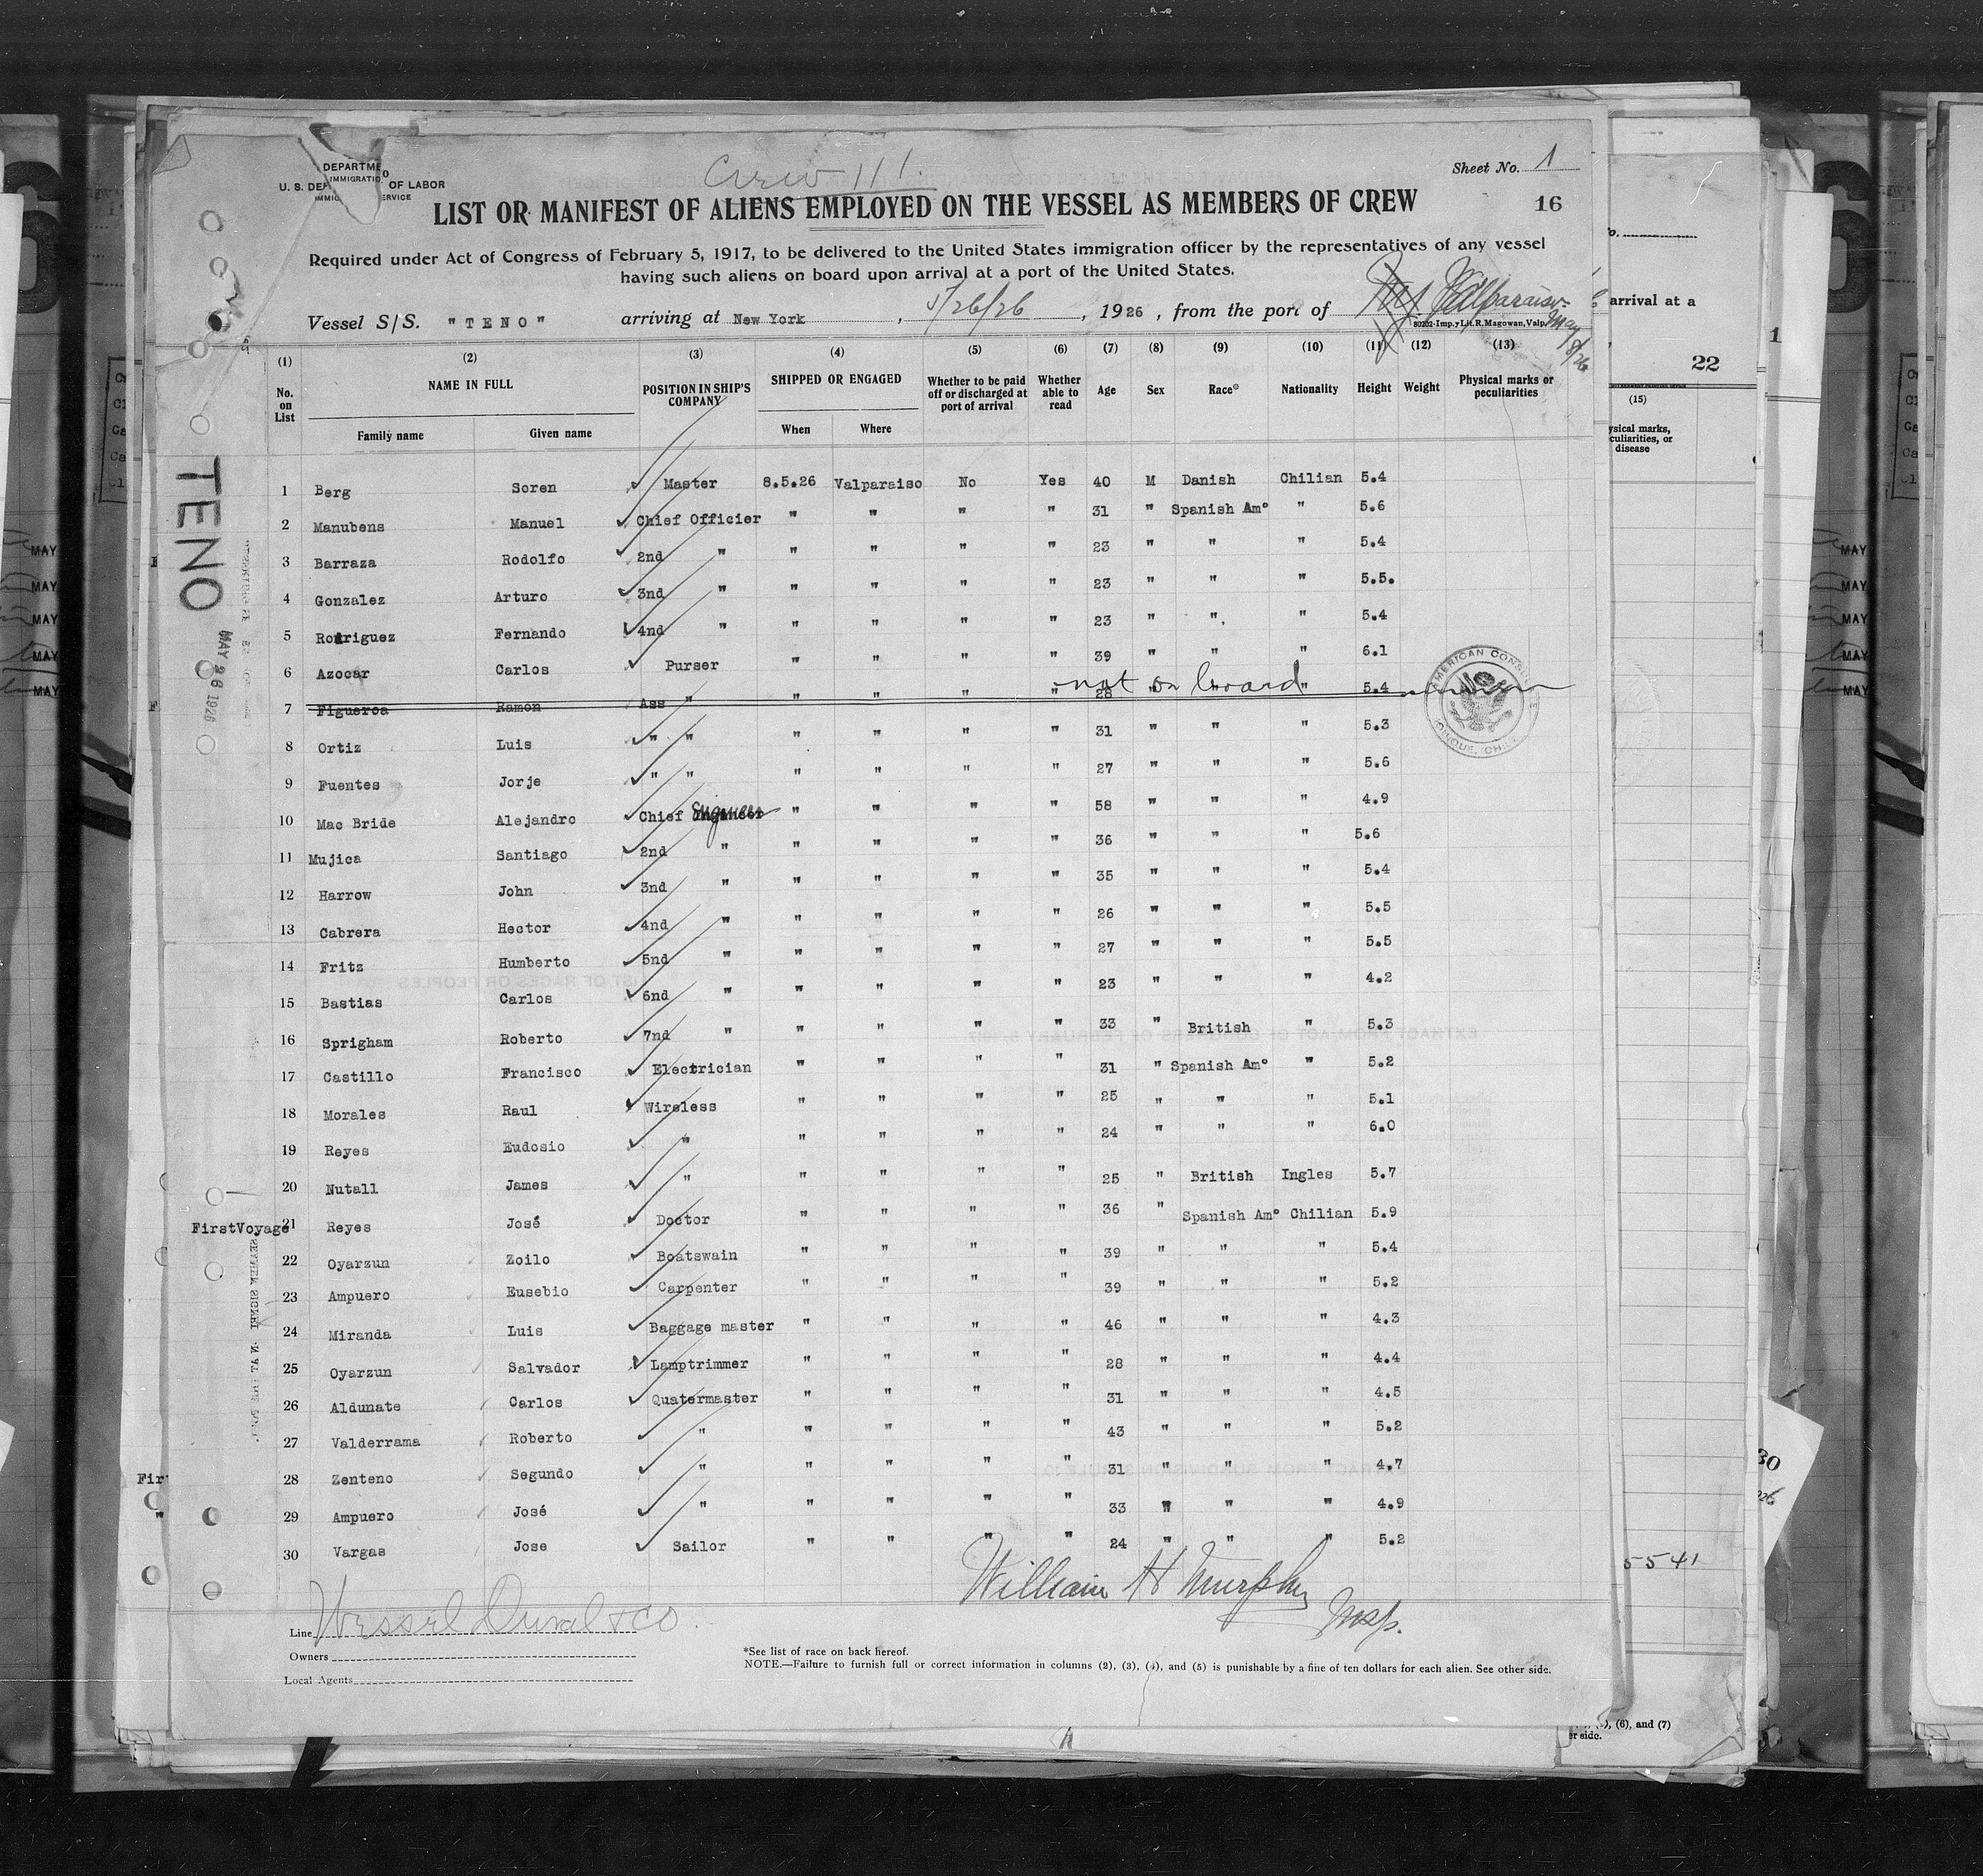 DEPARTME
IMMIGRATIO
U. S. DEP OF LABOR
IMMIG SERVICE
Crew 111.
Sheet No. 1
LIST OR MANIFEST OF ALIENS EMPLOYED ON THE VESSEL AS MEMBERS OF CREW
16
Required under Act of Congress of February 5, 1917, to be delivered to the United States immigration officer by the representatives of any vessel
having such aliens on board upon arrival at a port of the United States.
Vessel S/S. "TENO" arriving at New York, 5/26/26, 1926, from the port of Valparaiso
May 8/26
80202-Imp.y Lit.R.Magowan,Valp.
(1) (2) (3) (4) (5) (6) (7) (8) (9) (10) (11) (12) (13)
No. on List NAME IN FULL POSITION IN SHIP'S COMPANY SHIPPED OR ENGAGED Whether to be paid off or discharged at port of arrival Whether able to read Age Sex Race* Nationality Height Weight Physical marks or peculiarities
Family name Given name When Where
1 Berg Soren Master 8.5.26 Valparaiso No Yes 40 M Danish Chilian 5.4
2 Manubens Manuel Chief Officier " " " " 31 " Spanish Am° " 5.6
3 Barraza Rodolfo 2nd " " " " " 23 " " " 5.4
4 Gonzalez Arturo 3nd " " " " " 23 " " " 5.5.
5 Rodriguez Fernando 4nd " " " " " 23 " " " 5.4
6 Azocar Carlos Purser " " " " 39 " " " 6.1
not on board
7 Figueroa Ramon Ass " " " " " 28 " " " 5.4
8 Ortiz Luis " " " " " " 31 " " " 5.3
9 Fuentes Jorje " " " " " " 27 " " " 5.6
10 Mac Bride Alejandro Chief Engineer " " " " 58 " " " 4.9
11 Mujica Santiago 2nd " " " " " 36 " " " 5.6
12 Harrow John 3nd " " " " " 35 " " " 5.4
13 Cabrera Hector 4nd " " " " " 26 " " " 5.5
14 Fritz Humberto 5nd " " " " " 27 " " " 5.5
15 Bastias Carlos 6nd " " " " " 23 " " " 4.2
16 Sprigham Roberto 7nd " " " " " 33 " British " 5.3
17 Castillo Francisco Electrician " " " " 31 " Spanish Am° " 5.2
18 Morales Raul Wireless " " " " 25 " " " 5.1
19 Reyes Eudosio " " " " " 24 " " " 6.0
20 Nutall James " " " " " 25 " British Ingles 5.7
FirstVoyage 21 Reyes José Doctor " " " " 36 " Spanish Am° Chilian 5.9
22 Oyarzun Zoilo Boatswain " " " " 39 " " " 5.4
23 Ampuero Eusebio Carpenter " " " " 39 " " " 5.2
24 Miranda Luis Baggage master " " " " 46 " " " 4.3
25 Oyarzun Salvador Lamptrimmer " " " " 28 " " " 4.4
26 Aldunate Carlos Quatermaster " " " " 31 " " " 4.5
27 Valderrama Roberto " " " " " 43 " " " 5.2
28 Zenteno Segundo " " " " " 31 " " " 4.7
29 Ampuero José " " " " " 33 " " " 4.9
30 Vargas Jose Sailor " " " " 24 " " " 5.2
William H Murphy
Insp.
Line Wessel Duval & Co.
Owners
Local Agents
*See list of race on back hereof.
NOTE.—Failure to furnish full or correct information in columns (2), (3), (4), and (5) is punishable by a fine of ten dollars for each alien. See other side.
TENO
MAY 26 1926
AMERICAN CONSUL
IQUIQUE, CHILE
arrival at a
22
1
(15)
ysical marks,
culiarities, or
disease
5541
30
, (6), and (7)
er side.
MAY
MAY
MAY
MAY
MAY
MAY
MAY
MAY
MAY
MAY
Fir